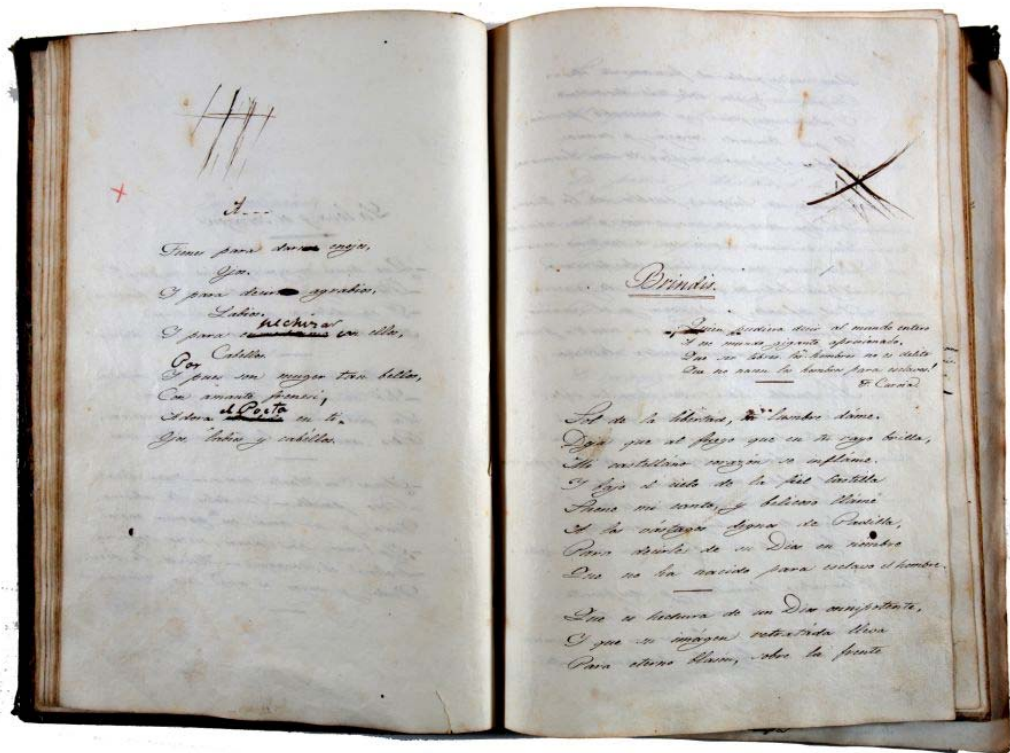 A....
Tienes para dar enojos,
Ojos.
Y para decir agrabios,
Labios.
Y para hechizar con ellos,
Cabellos.
Por
Y pues son muger tan bellos,
Con amante frenesi,
Adora el Poeta en ti.
Ojos labios y cabellos.
Brindis.
Quien pudiera decir al mundo entero
A ese mundo gigante aprosionado,
Que ser libres los hombres no es delito
Que no nacen los hombres para esclavos!
Sol de la libertad, tu lumbre dame.
Deja que al fuego que en tu rayo brilla,
Mi castellano corazon se inflame.
Y bajo el cielo de la fiel Castilla
Suene mi canto, y belicoso llame
A los vástagos dignos de Padilla,
Para decirle de su Dios en nombre
Que no ha nacido para esclavo el hombre.
Que es hechura de un Dios omnipotente,
Y que su imágen retratada lleva
Para eterno blason, sobre la frente